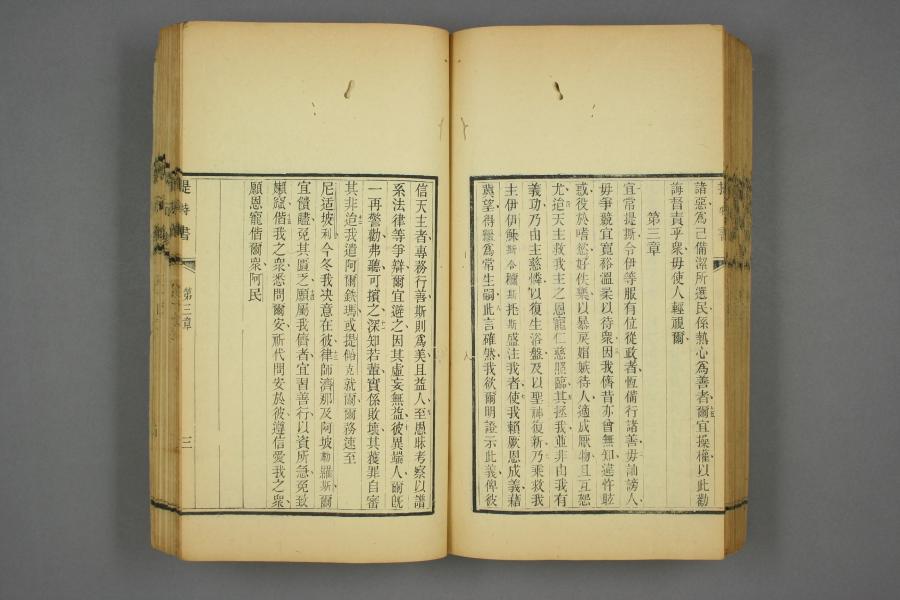 諸惡爲己備潔所選民係熱心爲善者爾宜操權以此勸
誨督責乎衆毋使人輕視爾
第三章
宜常提斯令伊等服有位從政者恆備行諸善毋訕謗人
毋爭競宜寬裕溫柔以待衆因我儕昔亦曾無知違忤眩
或役於嗜慾好佚樂以暴戾媢嫉待人適成厭物且互恕
尤迨天主救我主之恩寵仁慈照臨其拯我並非由我有
義功乃由主慈憐以復生浴盤及以聖神復新乃乘救我
主伊伊穌斯合穪斯托斯盛注我者使我賴厥恩成義藉
冀望得繼爲常生嗣此言確然我欲爾明證示此義俾彼
信天主者專務行善斯則爲美且益人至愚昧考察以譜
系法律等爭辯爾宜避之因其虛妄無益彼異端人爾旣
一再警勸弗聽可擯之深知若輩實係敗壞其獲罪自審
其非迨我遣阿爾鉄瑪或提他克就爾爾務速至
尼适坡利今冬我决意在彼律師濟那及阿坡勒羅斯爾
宜饋贐免其匱乏願屬我儕者宜習善行以資所急免致
嬾蹴偕我之衆悉問爾安祈代問安於彼遵信愛我之衆
願恩寵偕爾衆阿民
提特書
第三章
三